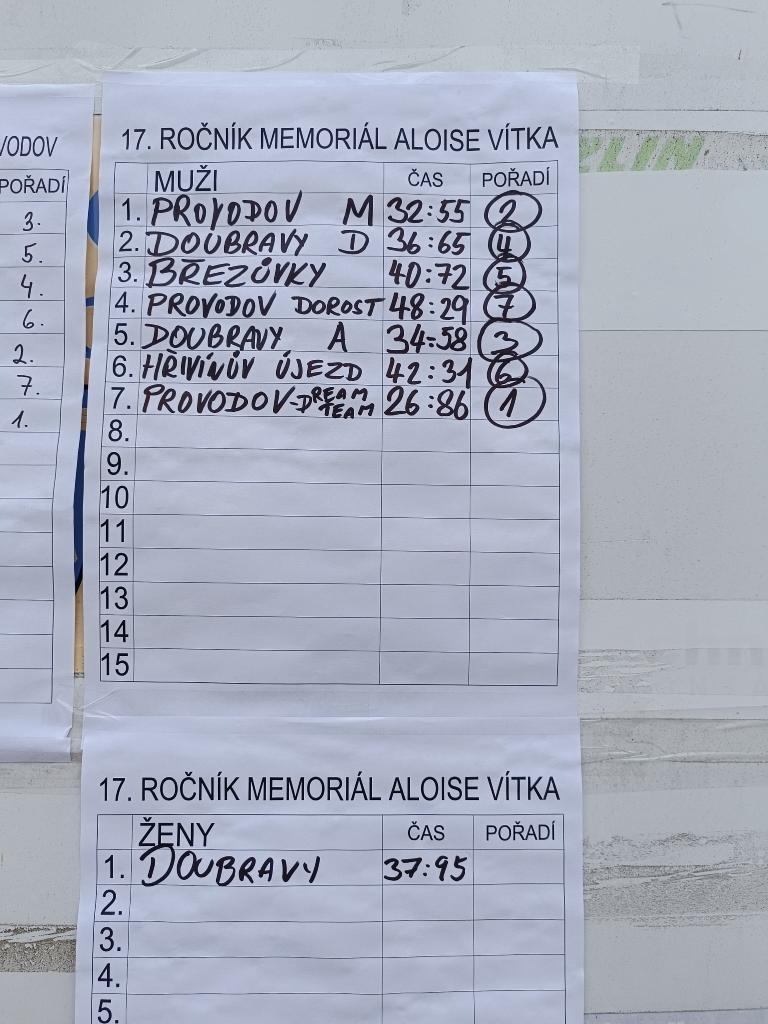 VODOV
POŘADÍ
3.
5.
4.
6.
2.
7.
1.
17. ROČNÍK MEMORIÁL ALOISE VÍTKA
MUŽI ČAS POŘADÍ
1. PROVODOV M 32:55 2
2. DOUBRAVY D 36:65 4
3. BŘEZŮVKY 40:72 5
4. PROVODOV DOROST 48:29 7
5. DOUBRAVY A 34:58 3
6. HŘIVÍNŮV ÚJEZD 42:31 6
7. PROVODOV-DREAM TEAM 26:86 1
8.
9.
10
11
12
13
14
15
17. ROČNÍK MEMORIÁL ALOISE VÍTKA
ŽENY ČAS POŘADÍ
1. DOUBRAVY 37:95
2.
3.
4.
5.